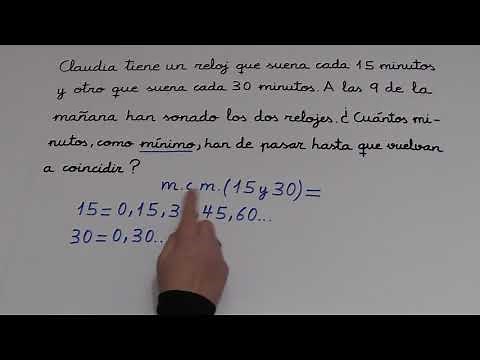 Claudia tiene un reloj que suena cada 15 minutos
y otro que suena cada 30 minutos. A las 9 de la
mañana han sonado los dos relojes. ¿Cuántos mi-
nutos, como mínimo, han de pasar hasta que vuelvan
a coincidir?
m.c.m. (15 y 30) =
15 = 0, 15, 3 45, 60...
30 = 0, 30...